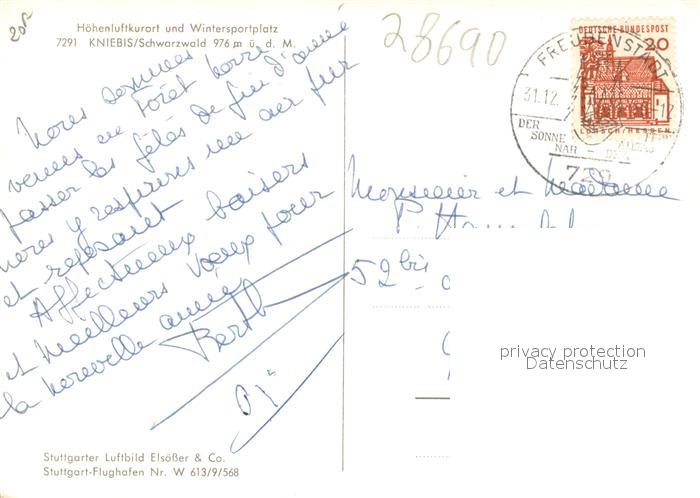 20F
Höhenluftkurort und Wintersportplatz
7291 KNIEBIS/Schwarzwald 976 m ü. d. M.
28690
DEUTSCHE BUNDESPOST
20
LORSCH/HESSEN
FREUDENSTADT
31.12.
DER
SONNE
NAH
729
Nous sommes
venus en Forêt Noire
passer les fêtes de fin d'année
nous y respirons un air pur
et reposant
Affectueux baisers
et meilleurs vœux pour
la nouvelle année
Monsieur et Madame
P.
52 bis
privacy protection
Datenschutz
Stuttgarter Luftbild Elsäßer & Co.
Stuttgart-Flughafen Nr. W 613/9/568